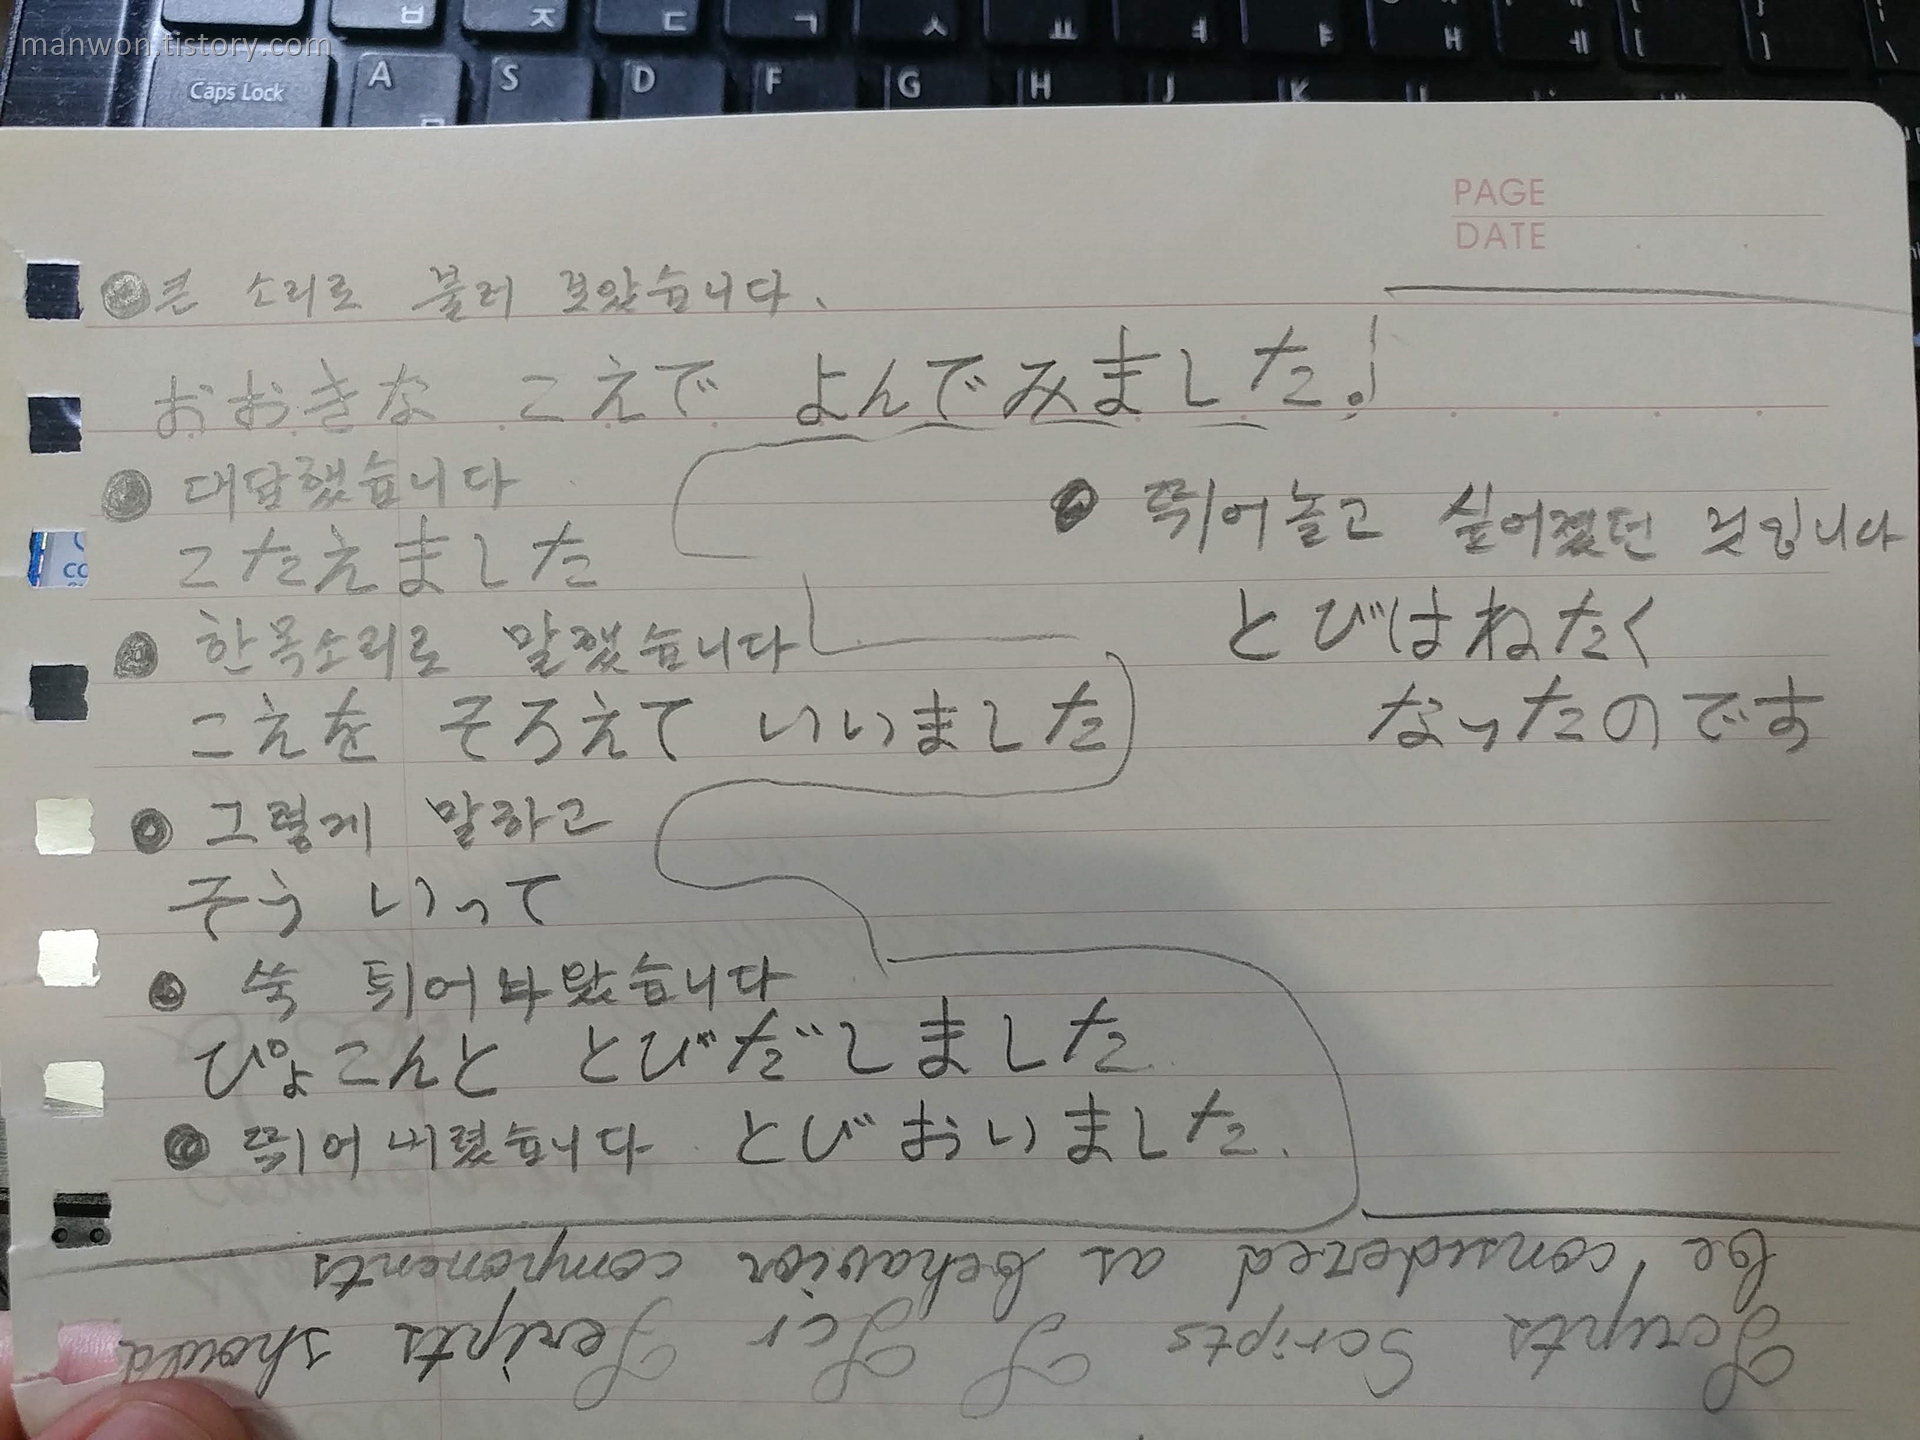 manwon.tistory.com
ㅂ ㅈ ㄷ ㄱ ㅅ ㅛ ㅕ ㅑ ㅐ ㅔ [ ]
Caps Lock A S D F G H J K L
PAGE
DATE
큰 소리로 불러 보았습니다.
おおきな こえで よんでみました。
대답했습니다
こたえました
한목소리로 말했습니다
こえを そろえて いいました
그렇게 말하고
そう いって
쑥 튀어나왔습니다
ぴょこんと とびだしました
뛰어내렸습니다 とびおいました.
뛰어놀고 싶어졌던 것입니다
とびはねたく
なったのです
Scripts Scripts S Scr Scripts should
be considered as behavior components